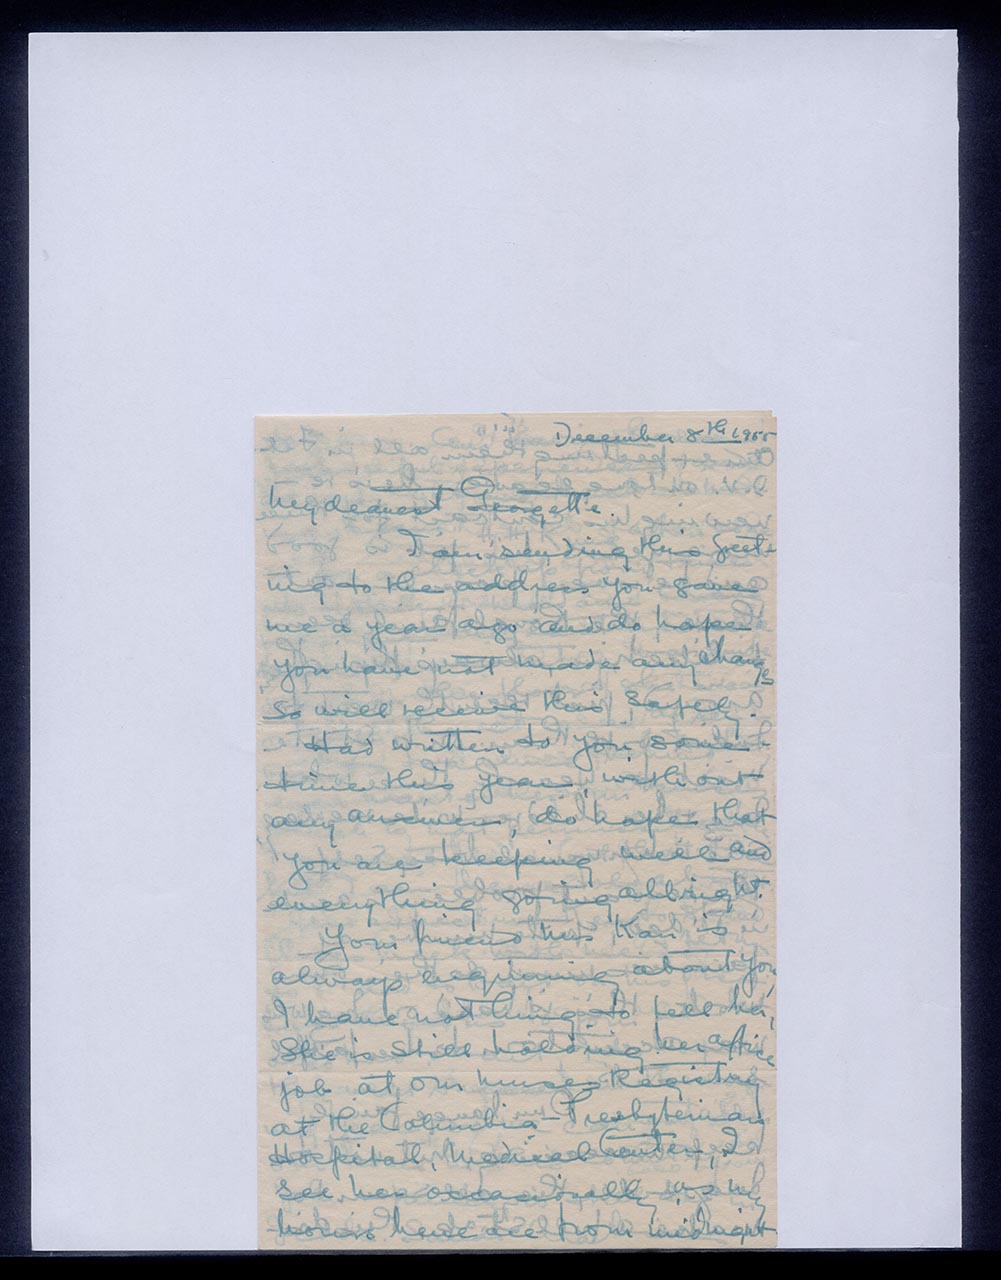 December 8th 1955
My dearest Georgette.
I am sending this greet-
ing to the address you gave
me a year ago and do hope
you have not made any changes
so will receive this safely.
Had written to you some
time this year, without
any answer, do hope that
you are keeping well and
everything going allright.
Your friend Mrs is
always enquiring about you,
I have nothing to tell her,
She is still holding her office
job at our nurses Registry
at the Columbia-Presbyterian
Hospital, Medical Center, I
see her occasionally as my
hours here are from midnight